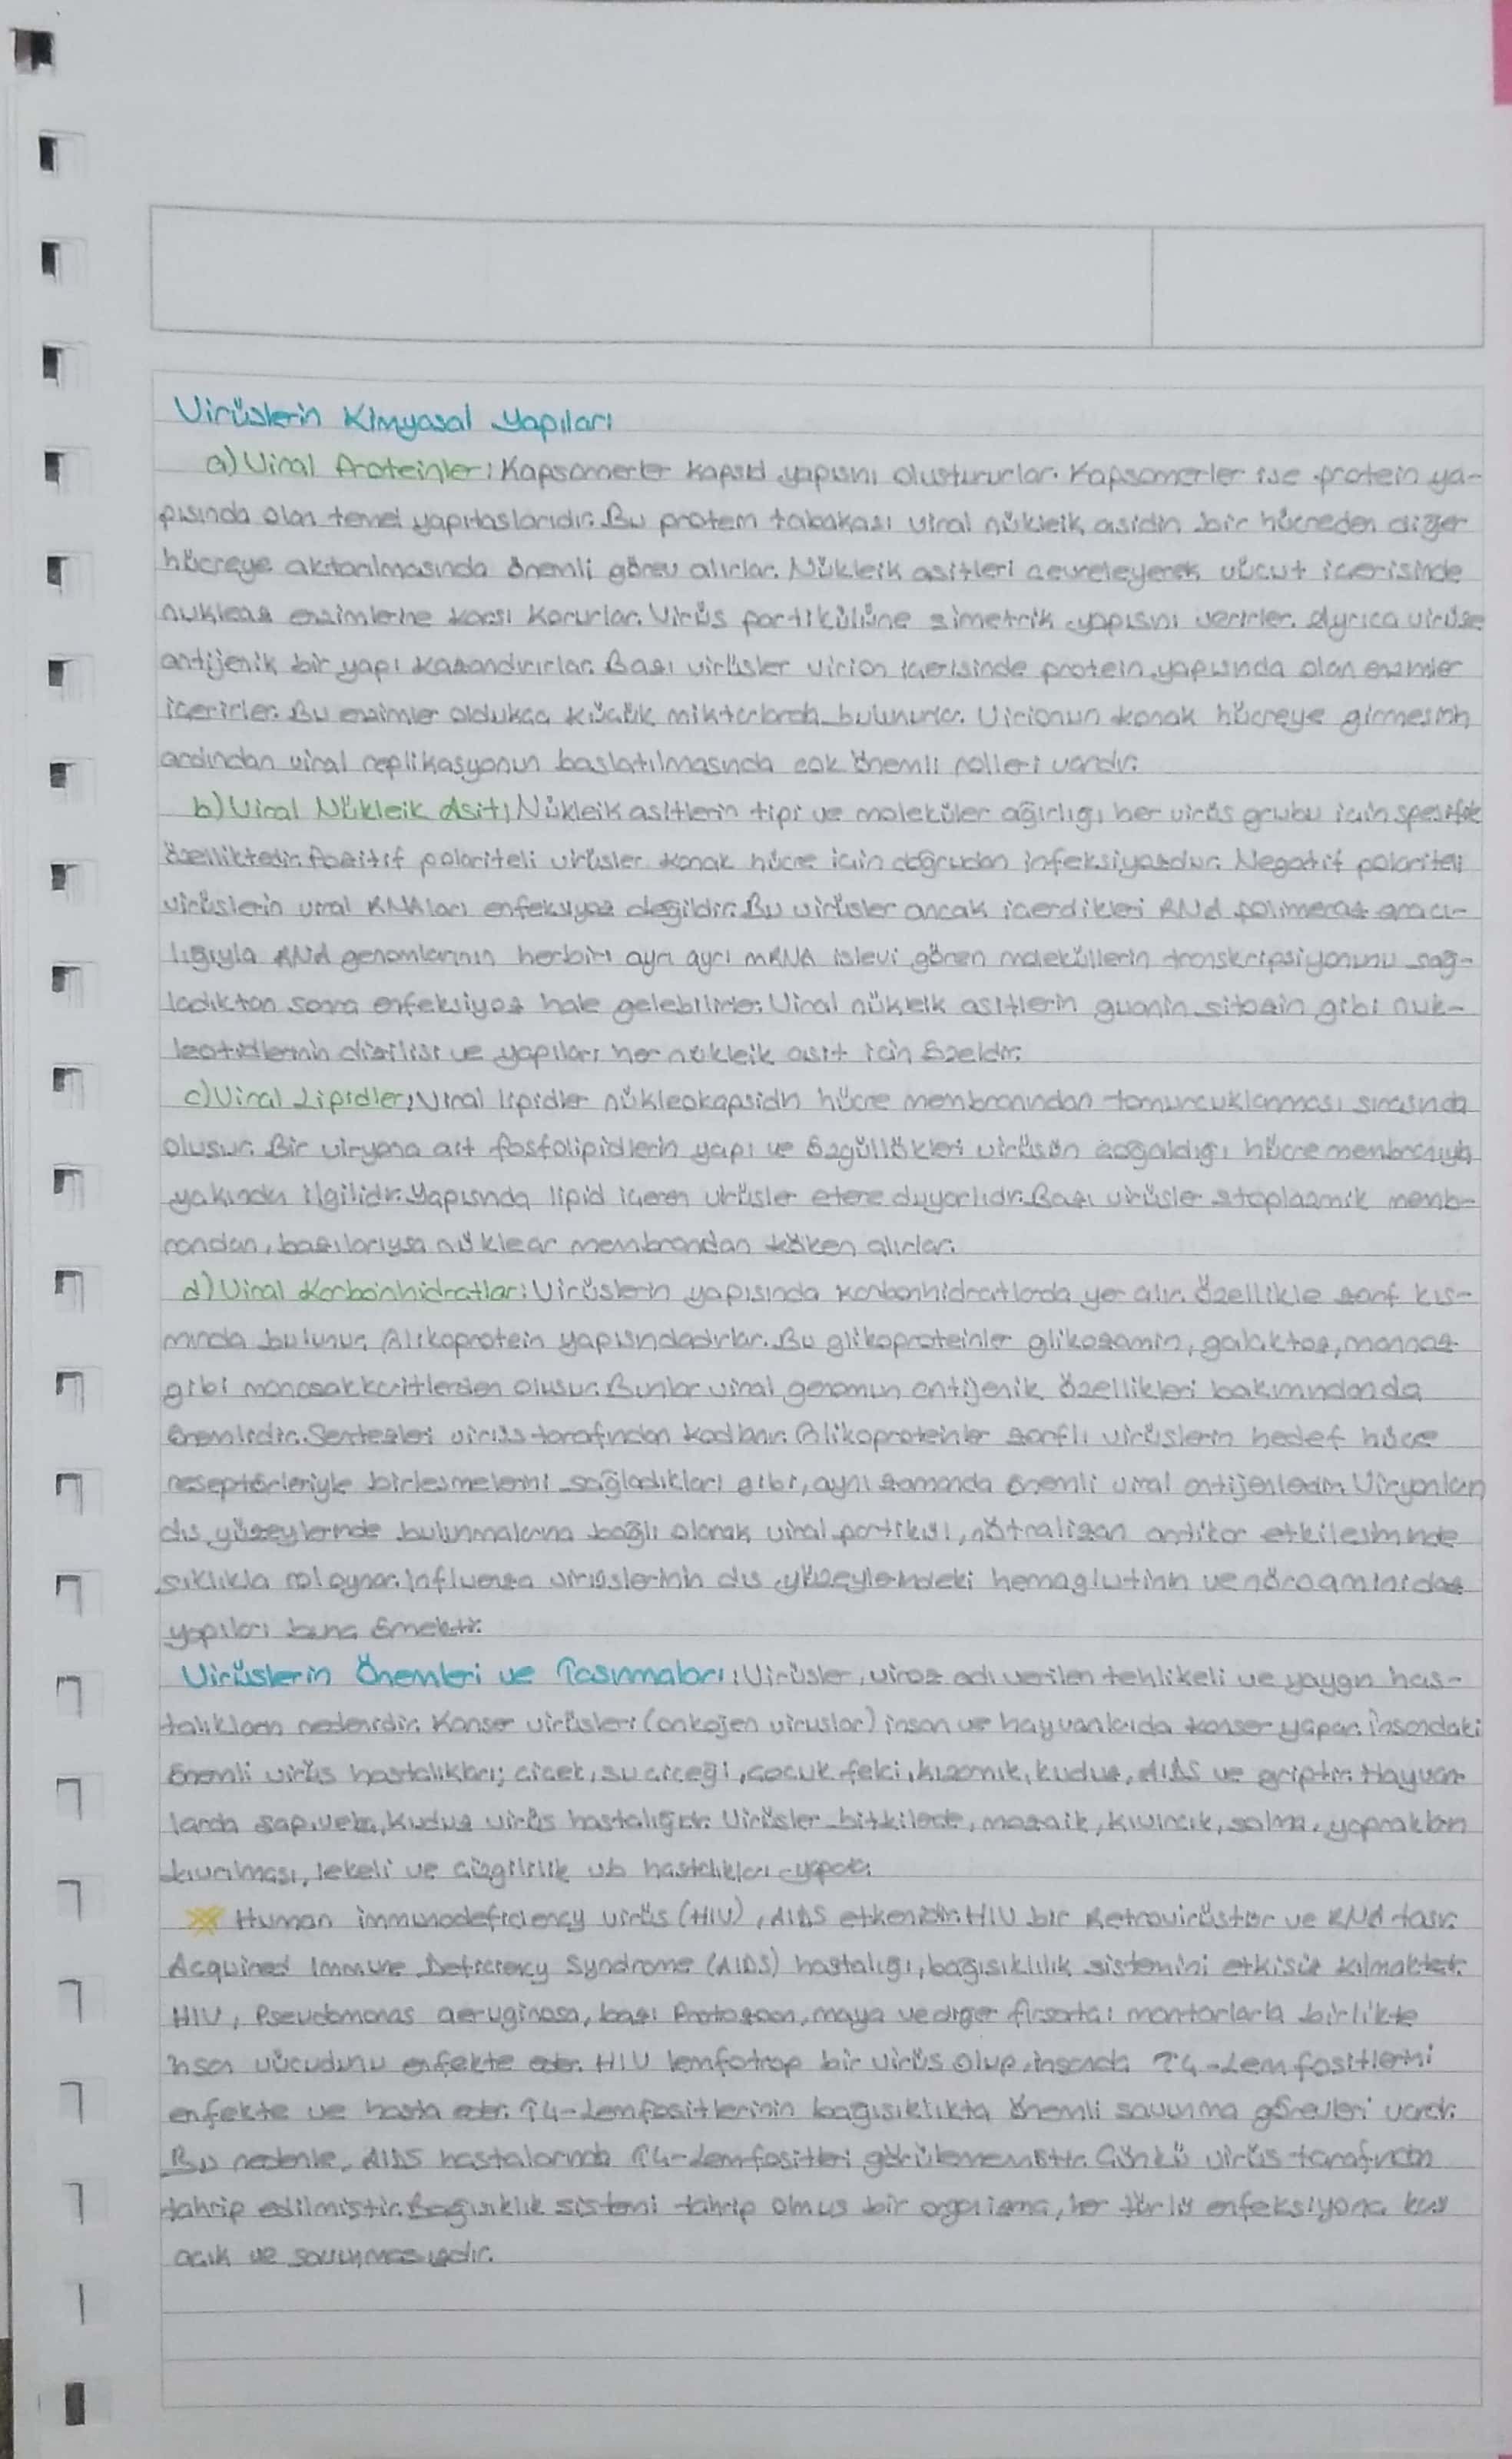 Virüslerin Kimyasal Yapıları
a) Viral Proteinler: Kapsomerler kapsid yapısını oluştururlar. Kapsomerler ise protein ya-
pısında olan temel yapıtaslarıdır. Bu protein tabakası viral nükleik asidin bir hücreden diğer
hücreye aktarılmasında önemli görev alırlar. Nükleik asitleri cevreleyerek vücut icerisinde
nukleaz enzimlerine karsı korurlar. Virüs partikülüne simetrik yapısını verirler. Ayrıca virüse
antijenik bir yapı kazandırırlar. Bazı virüsler virion icerisinde protein yapısında olan enzimler
icerirler. Bu enzimler oldukca kücük miktarlarda bulunurlar. Virionun konak hücreye girmesinin
ardından viral replikasyonun baslatılmasında cok önemli rolleri vardır.
b) Viral Nükleik Asit: Nükleik asitlerin tipi ve moleküler ağırlığı her virüs grubu icin spesifik
özelliktedir. Pozitif polariteli virüsler konak hücre icin doğrudan infeksiyozdur. Negatif polariteli
virüslerin viral RNAları enfeksiyoz degildir. Bu virüsler ancak icerdikleri RNA polimeraz aracı-
lığıyla RNA genomlarının herbiri ayrı ayrı mRNA islevi gören moleküllerin transkripsiyonunu sağ-
ladıktan sonra enfeksiyoz hale gelebilirler. Viral nükleik asitlerin guanin sitozin gibi nuk-
leotidlerinin dizilisi ve yapıları her nükleik asit icin özeldir.
c) Viral Lipidler: Viral lipidler nükleokapsidin hücre membranından tomurcuklanması sırasında
olusur. Bir viryona ait fosfolipidlerin yapı ve özgüllükleri virüsün coğaldığı hücre membranıyla
yakından ilgilidir. Yapısında lipid iceren virüsler etere duyarlıdır. Bazı virüsler stoplazmik memb-
randan, bazılarıysa nüklear membrandan köken alırlar.
d) Viral Karbonhidratlar: Virüslerin yapısında karbonhidratlarda yer alır. Özellikle zarf kıs-
mında bulunur. Glikoprotein yapısındadırlar. Bu glikoproteinler glikozamin, galaktoz, mannoz
gibi monosakkaritlerden olusur. Bunlar viral genomun antijenik özellikleri bakımındanda
önemlidir. Sentezleri virüs tarafından kodlanır. Glikoproteinler zarflı virüslerin hedef hücre
reseptörleriyle birlesmelerini sağladıkları gibi, aynı zamanda önemli viral antijenlerdir. Viryonların
dıs yüzeylerinde bulunmalarına bağlı olarak viral partikül, nötralizan antikor etkilesiminde
sıklıkla rol oynar. Influenza virüslerinin dıs yüzeylerindeki hemaglutinin ve nöroaminidaz
yapıları buna örnektir.
Virüslerin Önemleri ve Tasınmaları: Virüsler, viroz adı verilen tehlikeli ve yaygın has-
talıkların nedenidir. Kanser virüsleri (onkojen viruslar) insan ve hayvanlarda kanser yapar. İnsandaki
önemli virüs hastalıkları; cicek, su ciceği, cocuk felci, kızamık, kuduz, AIDS ve griptir. Hayvan-
larda sap, veba, kuduz virüs hastalığıdır. Virüsler bitkilerde, mozaik, kıvırcık, solma, yaprakların
kıvrılması, lekeli ve cizgililik vb hastalıkları yapar.
Human immunodeficiency virüs (HIV), AIDS etkenidir. HIV bir Retrovirüstür ve RNA tasır.
Acquired Immune Deficiency Syndrome (AIDS) hastalığı, bağısıklılık sistemini etkisiz kılmaktadır.
HIV, Pseudomonas aeruginosa, bazı Protozoon, maya ve diğer fırsatcı mantarlarla birlikte
insan vücudunu enfekte eder. HIV lemfotrop bir virüs olup, insanda T4-Lemfositlerini
enfekte ve hasta eder. T4-Lemfositlerinin bağısıklıkta önemli savunma görevleri vardır.
Bu nedenle, AIDS hastalarında T4-Lemfositleri görülememistir. Cünkü virüs tarafından
tahrip edilmistir. Bağısıklık sistemi tahrip olmus bir organizma, her türlü enfeksiyona karsı
acık ve savunmasızdır.